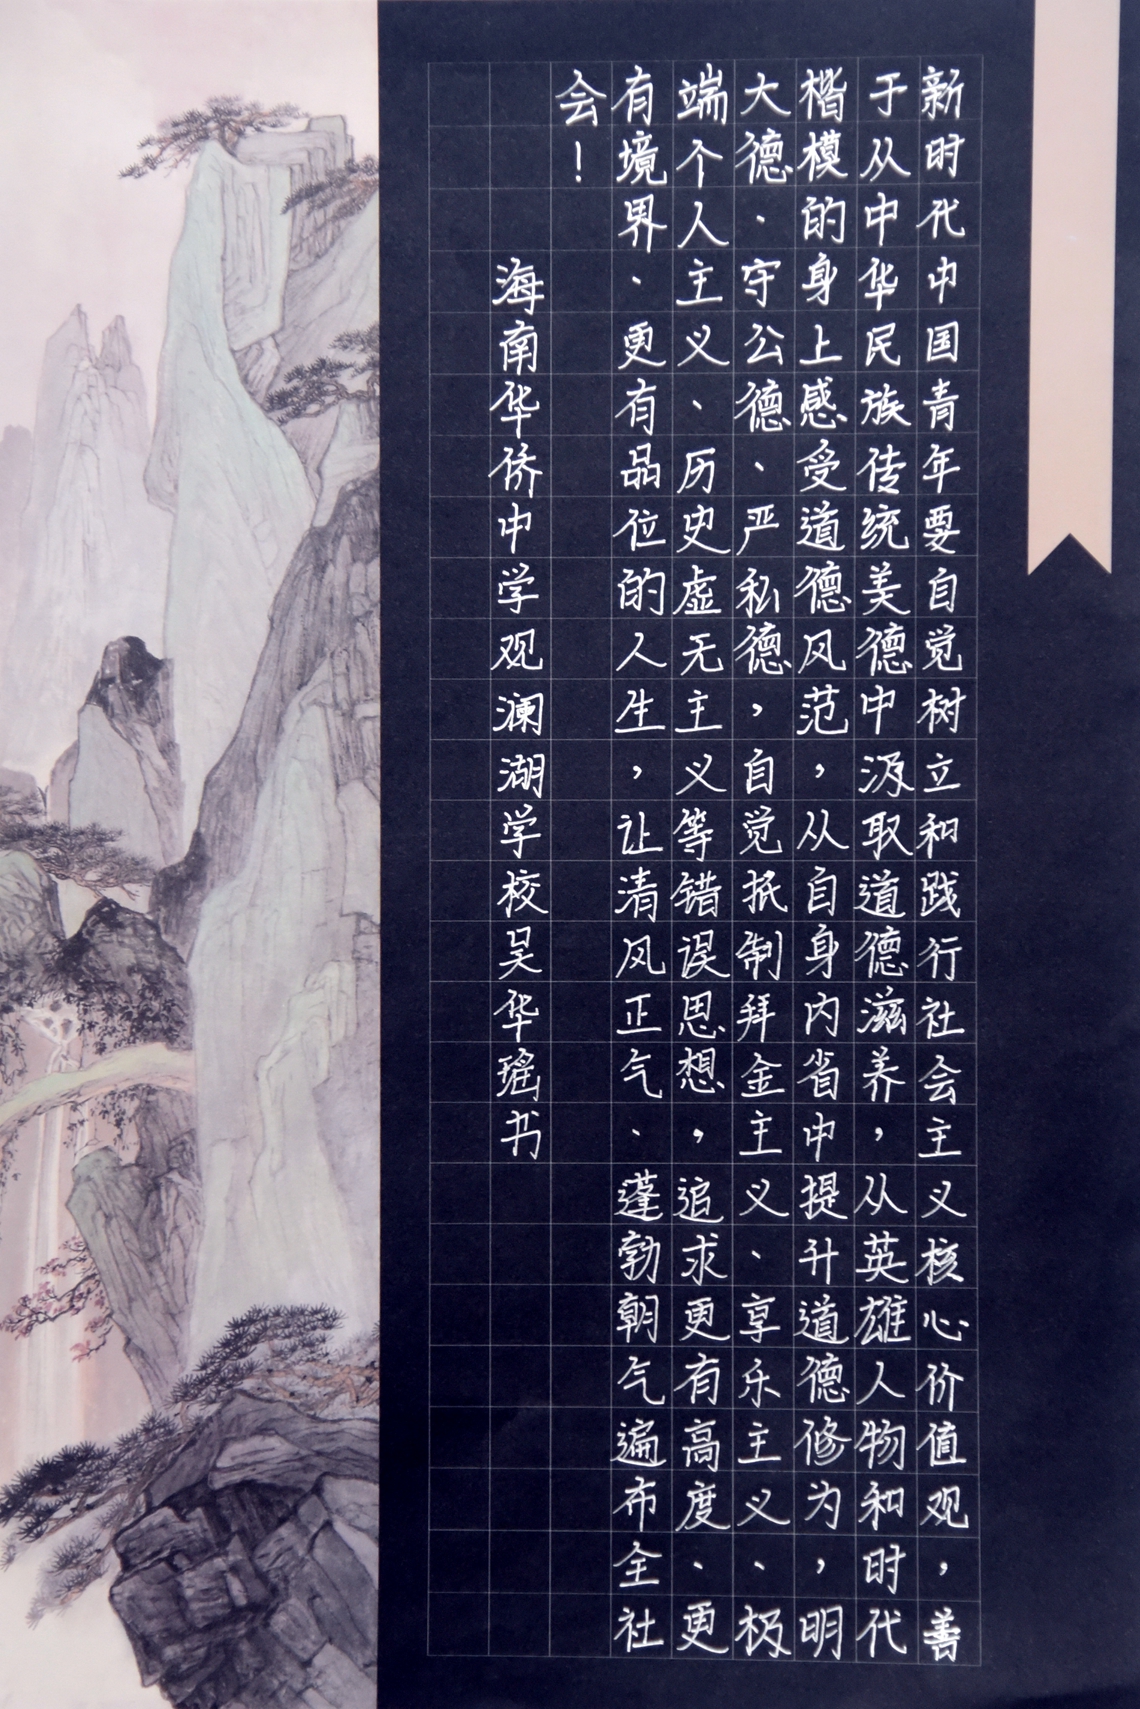 新时代中国青年要自觉树立和践行社会主义核心价值观，善
于从中华民族传统美德中汲取道德滋养，从英雄人物和时代
楷模的身上感受道德风范，从自身内省中提升道德修为，明
大德、守公德、严私德，自觉抵制拜金主义、享乐主义、极
端个人主义、历史虚无主义等错误思想，追求更有高度、更
有境界、更有品位的人生，让清风正气、蓬勃朝气遍布全社
会！
海南华侨中学观澜湖学校吴华瑶书